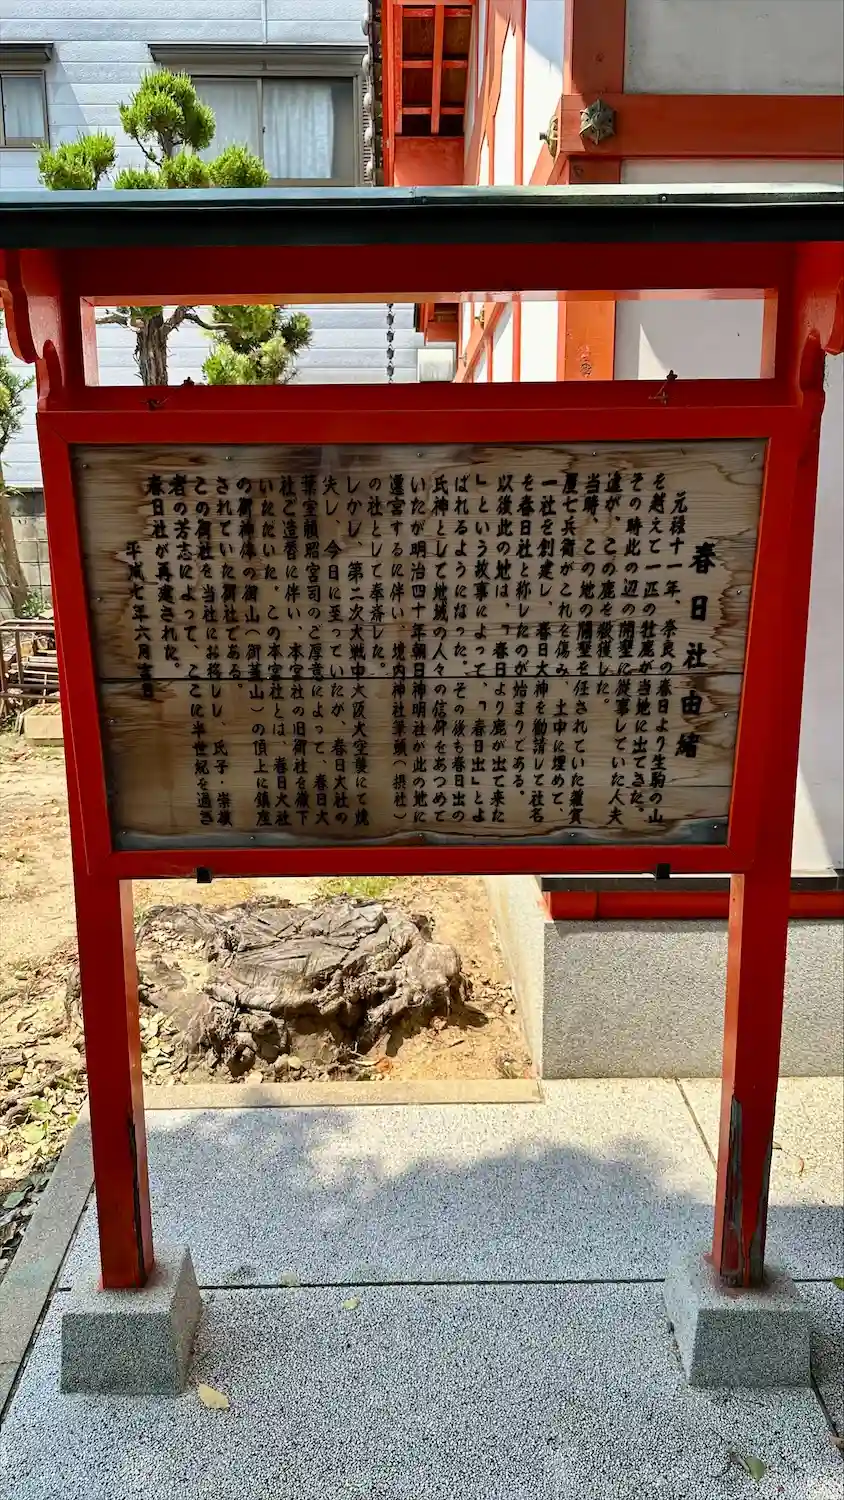 春日社由緒
元禄十一年、奈良の春日より生駒の山
を越えて一匹の牡鹿が当地に出てきた。
その時此の辺の開墾に従事していた人夫
達が、この鹿を殺獲した。
当時、この地の開墾を任されていた雑賀
屋七兵衛がこれを傷み、土中に埋めて、
一社を創建し、春日大神を勧請して社名
を春日社と称したのが始まりである。
以後此の地は、「春日より鹿が出て来た
」という故事によって、「春日出」とよ
ばれるようになった。その後も春日出の
氏神として地域の人々の信仰をあつめて
いたが明治四十年朝日神明社が此の地に
遷宮するに伴い、境内神社筆頭（摂社）
の社として奉斎した。
しかし、第二次大戦中大阪大空襲にて焼
失し、今日に至っていたが、春日大社の
葉室頼昭宮司のご厚意によって、春日大
社ご造替に伴い、本宮社の旧御社を撤下
いただいた。この本宮社とは、春日大社
の御神体の御山（御蓋山）の頂上に鎮座
されていた御社である。
この御社を当社にお移しし、氏子・崇敬
者の芳志によって、ここに半世紀を過ぎ
春日社が再建された。
平成七年六月吉日